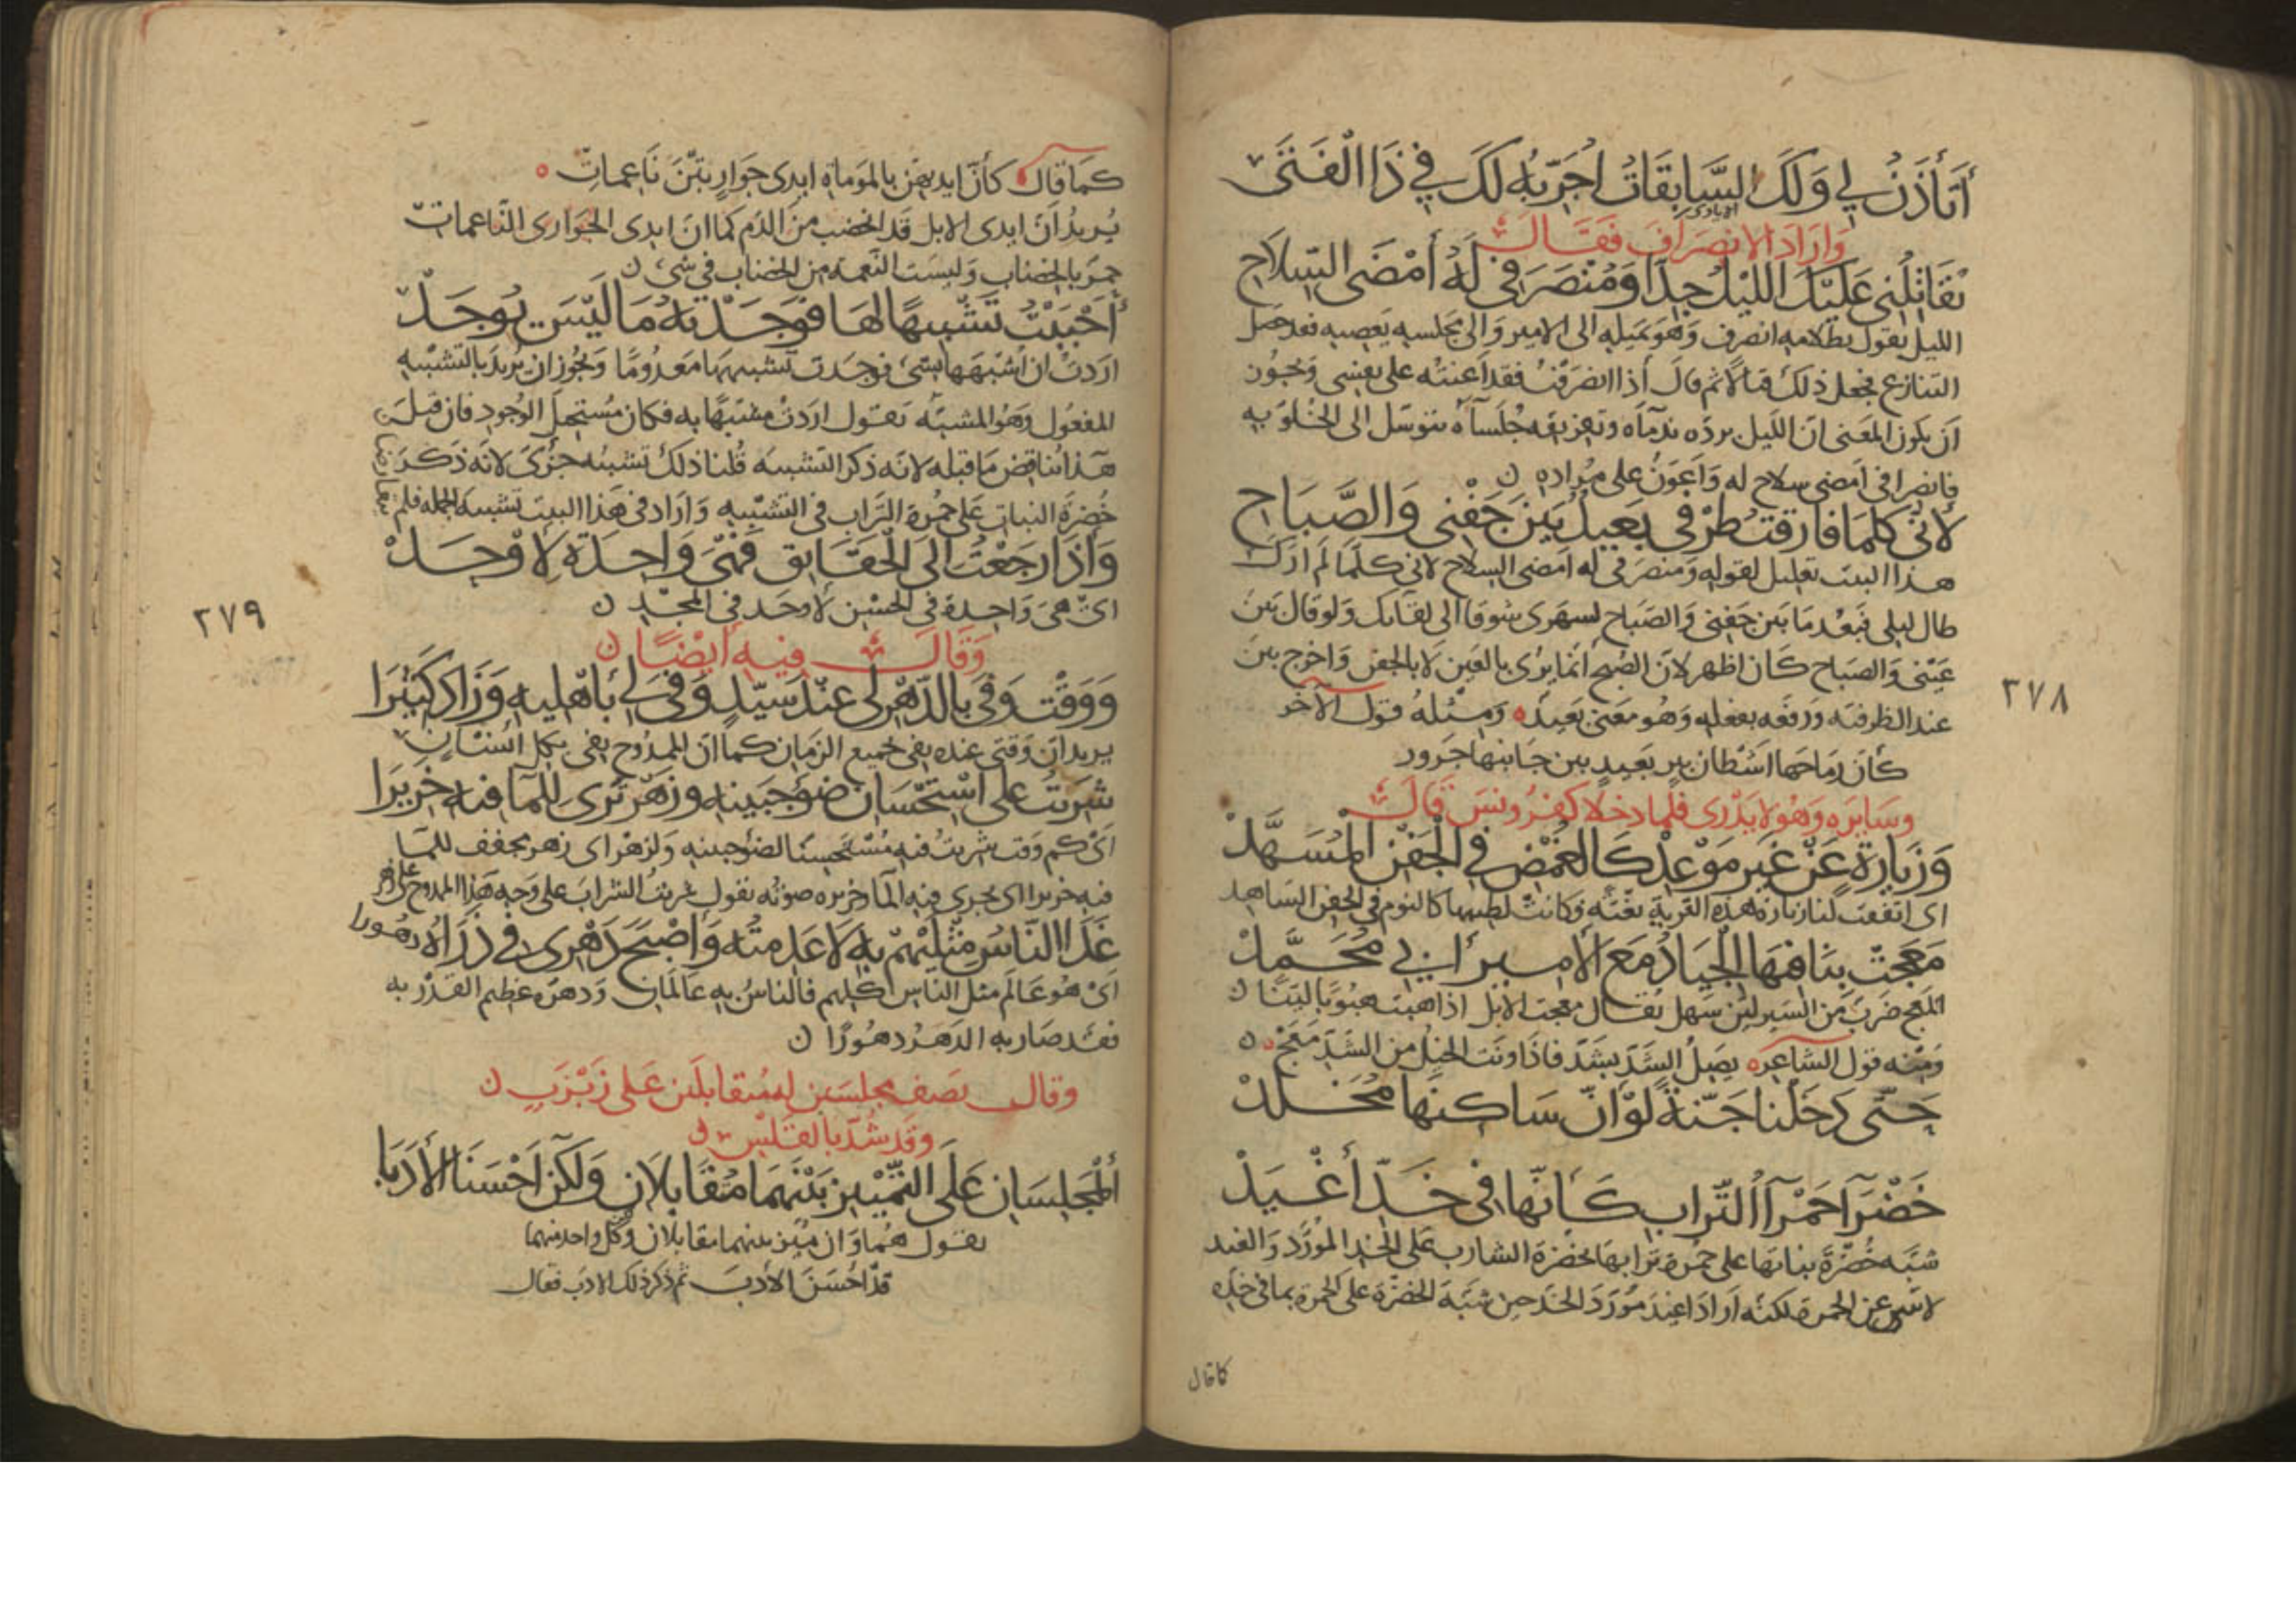 أَتَأْذَنُ لِي وَلَكَ السَّابِقَاتُ أُجَرِّبُهُ لَكَ فِي ذَا الْفَتَى
وَارَادَ الانصِرَافَ فَقَالَ
يُقَاتِلُنِي عَلَيْكَ اللَّيْلُ جِدًّا وَمُنْصَرَفِي لَهُ أَمْضَى السِّلَاحِ
الليل يقول بظلامه انصرف وهو بميله الى الامير والى مجلسه يعصيه فقد حصل
التنازع فجعل ذلك قتالا ثم قال اذا انصرفت فقد اعنته على نفسى ويجوز
ان يكون المعنى ان الليل برده ندماه وتفريقه جلساه يتوسل الى الخلو به
فانصرافى امضى سلاح له واعون على مراده
لِأَنِّي كُلَّمَا فَارَقْتُ طَرْفِي بَعِيدٌ بَيْنَ جَفْنِي وَالصَّبَاحِ
هذا البيت تعليل لقوله ومنصرفى له امضى السلاح لانى كلما لم ارك
طال ليلى فبعد ما بين جفنى والصباح لسهرى شوقا الى لقائك ولو قال بين
عينى والصباح كان اظهر لان الصبح انما يرى بالعين لا بالجفن واخرج بين
عند الظرفيه ورفعه بفعله وهو معنى بعيد ومثله قول الآخر
كأن رماحها اشطان بير بعيد بين جانبها جرور
وسايره وهو لا يدرى فلما دخلا كفرونس قال
وَزِيَارَةٍ عَنْ غَيْرِ مَوْعِدْ كَالغُمْضِ فِي الْجَفْنِ الْمُسَهَّدْ
اى اتفقت لنا زيارة هذه القرية بغتة وكانت لطيبها كالنوم فى الجفن الساهد
مَعَجَتْ بِنَا فِيهَا الْجِيَادُ مَعَ الْأَمِيرِ أَبِي مُحَمَّدْ
المعج ضرب من السير لين سهل يقال معجت الابل اذا هبت هبوبا لينا
ومنه قول الشاعر يصل الشد بشد فاذا ونت الخيل من الشد معج
حَتَّى دَخَلْنَا جَنَّةً لَوْ أَنَّ سَاكِنَهَا مُخَلَّدْ
خَضْرَآءَ حَمْرَآءَ التُّرَابِ كَأَنَّهَا فِي خَدِّ أَغْيَدْ
شبه خضرة نباتها على حمرة ترابها بخضرة الشارب على الخد المورد والغيد
لا ينبى عن الحمرة لكنه اراد اغيد مورد الخد حين شبه الخضرة على الحمرة بما فى خده
كما قال
٢٧٨
كما قال كأن ايديهن بالموماه ايدى جوار بتن ناعمات
يريد ان ايدى الابل قد اختضب من الدم كما ان ايدى الجوارى الناعمات
حمر بالخضاب وليست النعمة من الخضاب فى شىء
أَحْبَبْتُ تَشْبِيهًا لَهَا فَوَجَدْتُهُ مَا لَيْسَ يُوجَدْ
اردت ان اشبهها بشى فوجدت تشبيهها معدوما ويجوز ان يريد بالتشبيه
المفعول وهو المشبه يقول اردت مشبها به فكان مستحيل الوجود فان قيل
هذا يناقض ما قبله لانه ذكر التشبيه قلنا ذلك تشبيه جزوى لانه ذكر
خضرة النبات على حمرة التراب فى التشبيه واراد فى هذا البيت تشبيه الجملة فلم
وَإِذَا رَجَعْتَ إِلَى الْحَقَايِقِ فَهْيَ وَاحِدَةٌ لِأَوْحَدْ
اى هى واحدة فى الحسن لاوحد فى المجد
وَقَالَ فِيهِ أَيْضًا
وَوَقْتٍ وَفَى بِالدَّهْرِ لِي عِنْدَ سَيِّدٍ وَفَى لِي بِأَهْلِيهِ وَزَادَ كَثِيرَا
يريد ان وقتى عنده يفى بجميع الزمان كما ان الممدوح يفى بكل انسان
شَرِبْتُ عَلَى اسْتِحْسَانِ ضَوْءِ جَبِينِهِ وَزَهْرٍ تَرَى لِلْمَآءِ فِيهِ خَرِيرَا
اى كم وقت شربت فيه مستحسنا لضو جبينه ولزهر اى زهر يجفف للما
فيه خريرا اى يجرى فيه الما وخريره صوته يقول شربت الشراب على وجه هذا الممدوح على زهر
غَدَا النَّاسُ مِثْلَيْهِمْ بِهِ لَا عَدِمْتُهُ وَأَصْبَحَ دَهْرِي فِي ذَرَاهُ دُهُورَا
اى هو عالم مثل الناس كلهم فالناس به عالمان ودهره عظيم القدر به
فقد صار به الدهر دهورا
وقال يصف مجلسين له متقابلين على زبزب
وقد شد بالقلس
أَلْمَجْلِسَانِ عَلَى التَّمْيِيزِ بَيْنَهُمَا مُقَابِلَانِ وَلَكِنْ أَحْسَنَا الْأَدَبَا
يقول هما وان ميز بينهما مقابلان وكل واحد منهما
قد احسن الأدب ثم ذكر ذلك الادب فقال
٢٧٩